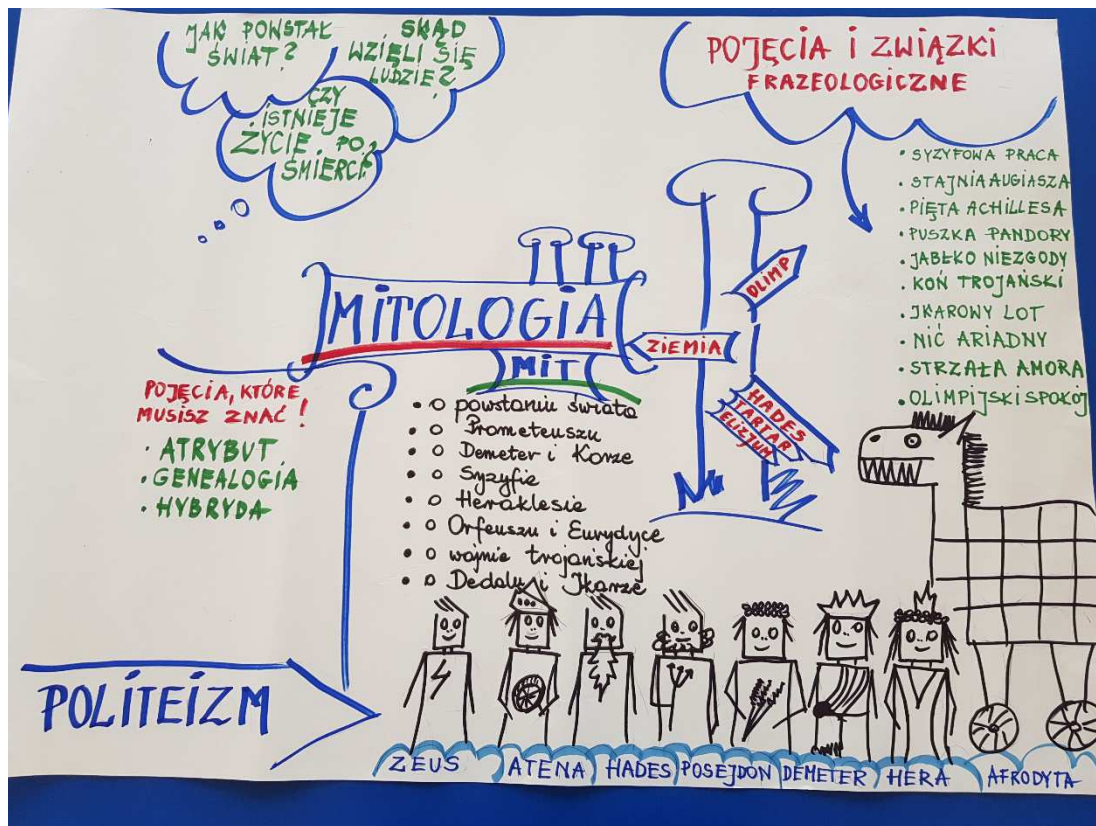 JAK POWSTAŁ
ŚWIAT?
SKĄD
WZIĘLI SIĘ
LUDZIE?
CZY
ISTNIEJE
ŻYCIE PO
ŚMIERCI?
POJĘCIA I ZWIĄZKI
FRAZEOLOGICZNE
• SYZYFOWA PRACA
• STAJNIA AUGIASZA
• PIĘTA ACHILLESA
• PUSZKA PANDORY
• JABŁKO NIEZGODY
• KOŃ TROJAŃSKI
• IKAROWY LOT
• NIĆ ARIADNY
• STRZAŁA AMORA
• OLIMPIJSKI SPOKÓJ
MITOLOGIA
MIT
OLIMP
ZIEMIA
HADES
TARTAR
ELIZJUM
POJĘCIA, KTÓRE
MUSISZ ZNAĆ!
• ATRYBUT
• GENEALOGIA
• HYBRYDA
• o powstaniu świata
• o Prometeuszu
• o Demeter i Korze
• o Syzyfie
• o Heraklesie
• o Orfeuszu i Eurydyce
• o wojnie trojańskiej
• o Dedalu i Ikarze
POLITEIZM
ZEUS
ATENA
HADES
POSEJDON
DEMETER
HERA
AFRODYTA